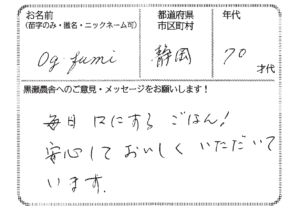 お名前
(苗字のみ・匿名・ニックネーム可)
都道府県
市区町村
年代
Og. fumi
静岡
70
才代
黒瀬農舎へのご意見・メッセージをお願いします！
毎日口にする ごはん！
安心して おいしく いただいて
います。